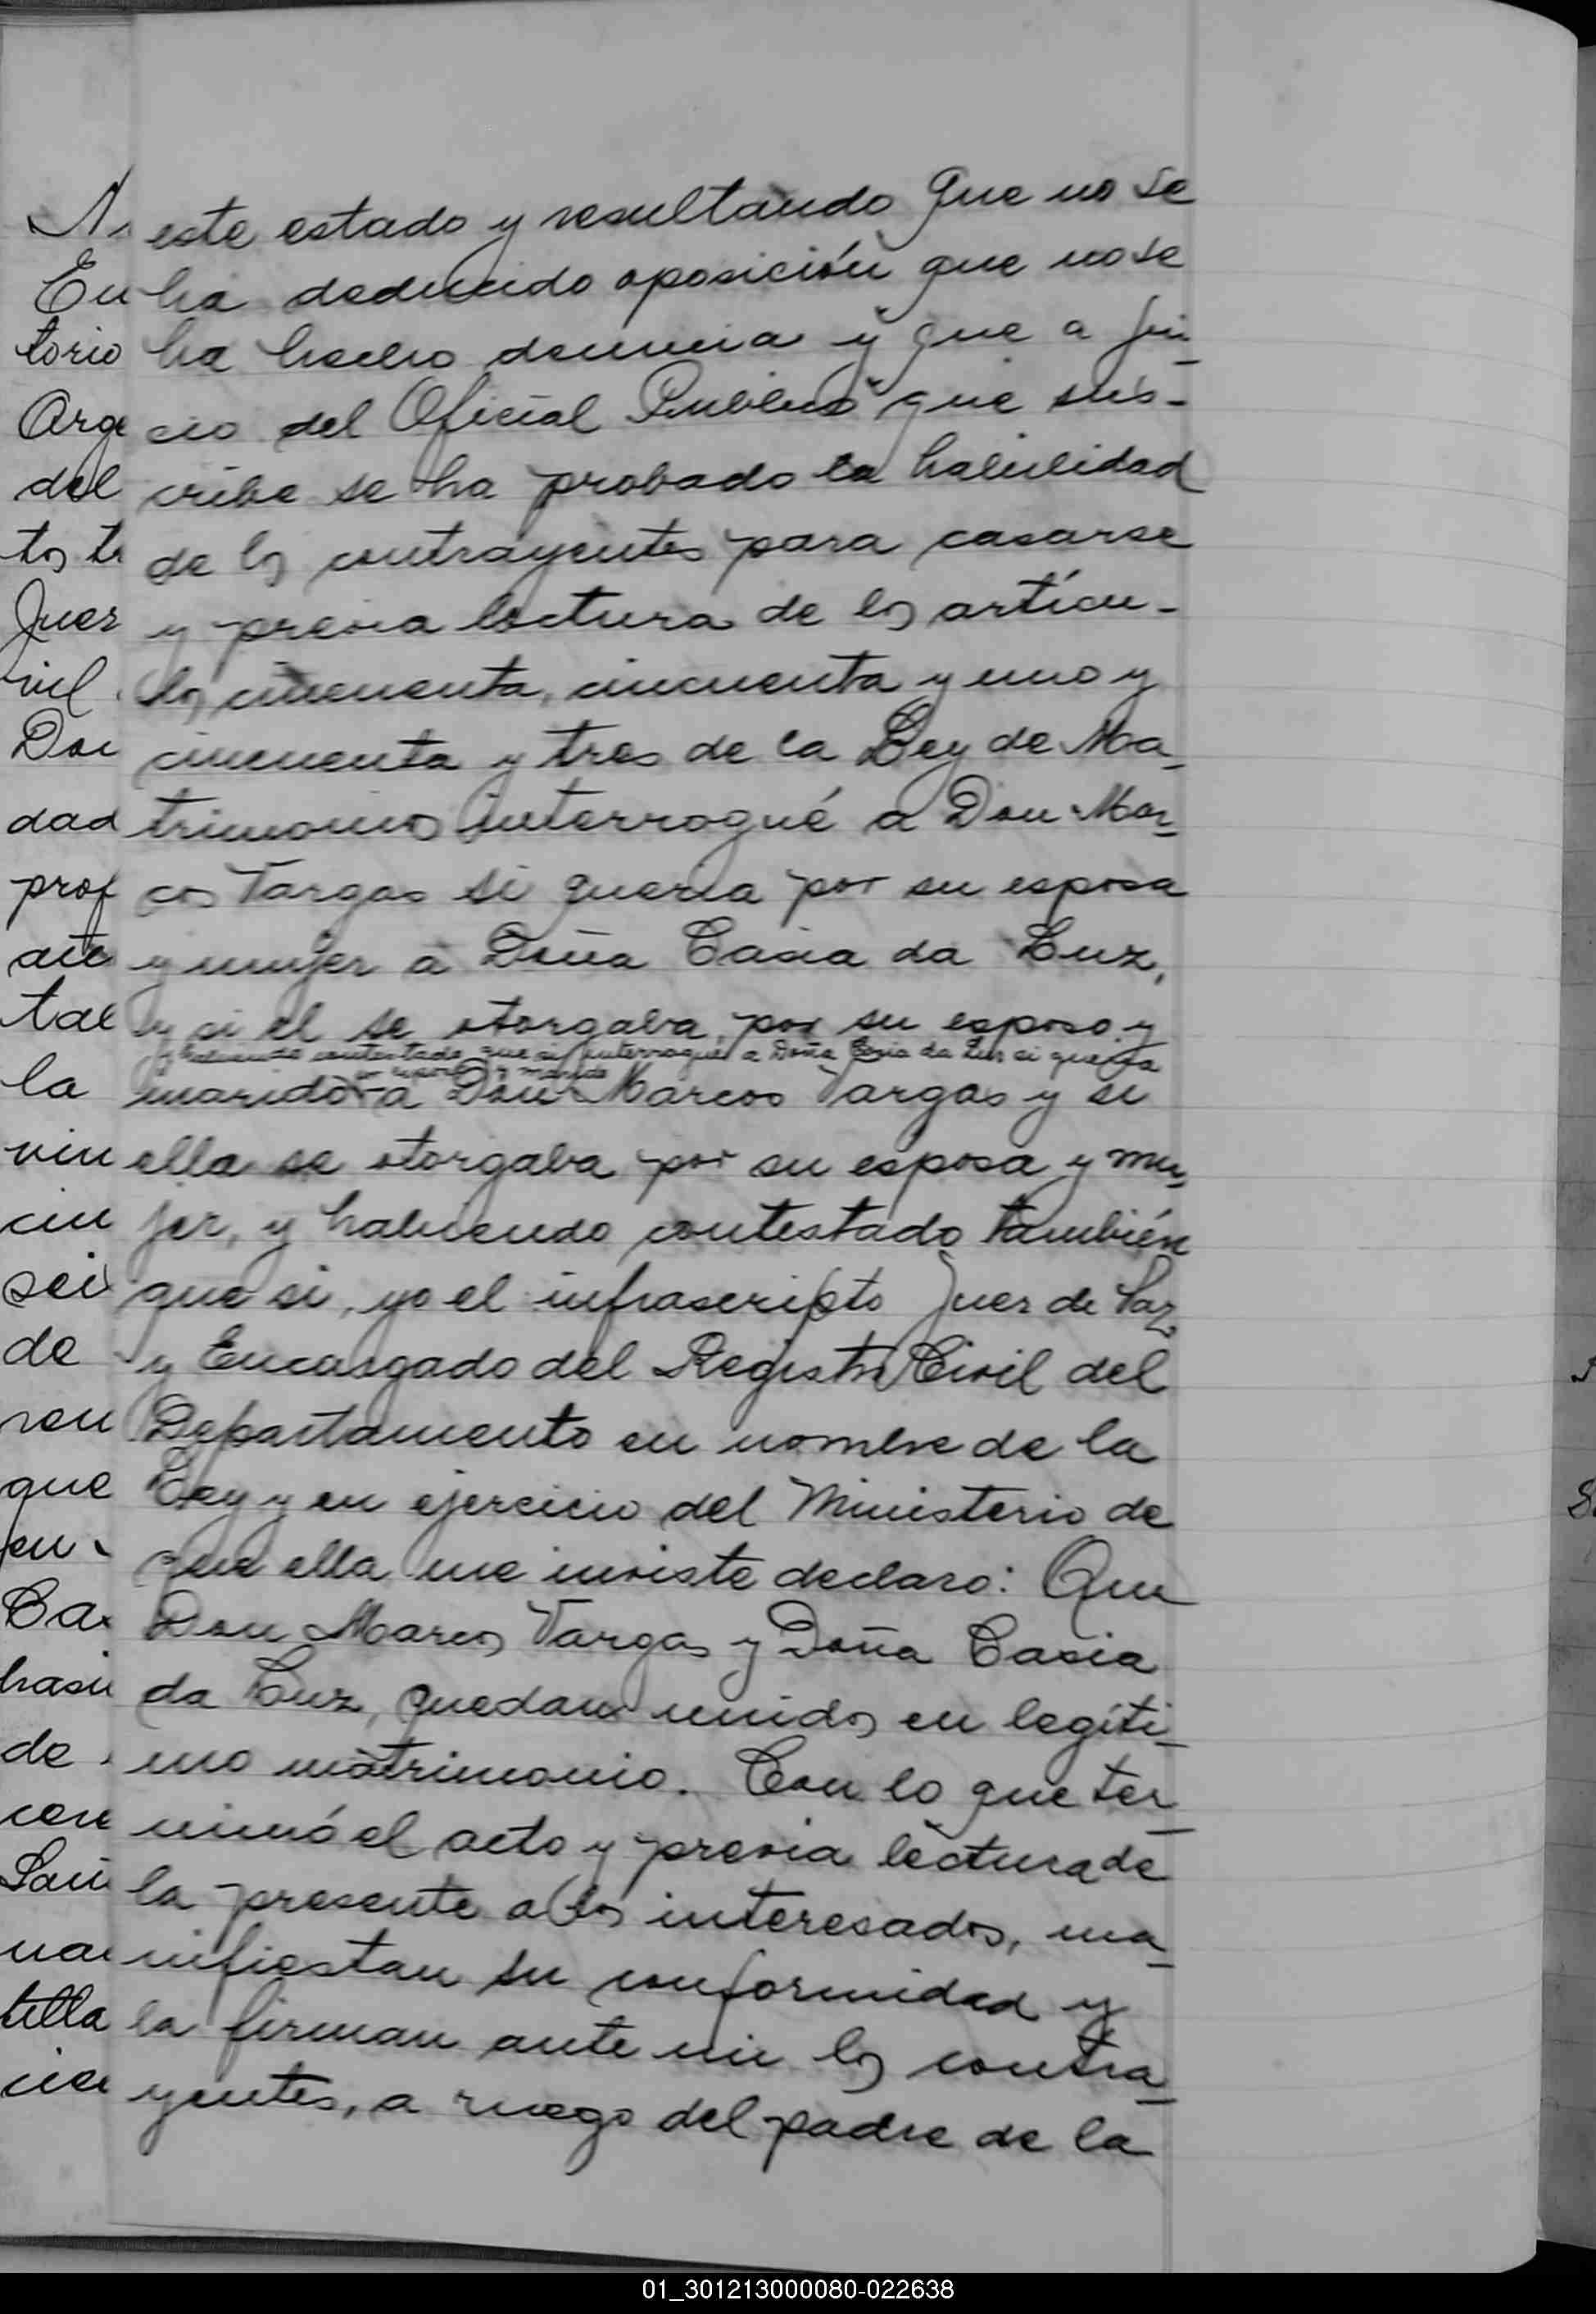 este estado y resultando que no se
ha deducido oposición que no se
ha hecho denuncia y que a jui-
cio del Oficial Público que sus-
cribe se ha probado la habilidad
de los contrayentes para casarse
y previa lectura de los artícu-
los cincuenta, cincuenta y uno y
cincuenta y tres de la Ley de Ma-
trimonio interrogué a Don Mar-
cos Vargas si quería por su esposa
y mujer a Doña Casia da Luz,
y si el se otorgaba por su esposo y
y habiendo contestado que si, interrogué a Doña Casia da Luz si quería
por esposo y marido
marido a Don Marcos Vargas y si
ella se otorgaba por su esposa y mu-
jer, y habiendo contestado también
que si, yo el infrascripto Juez de Paz
y Encargado del Registro Civil del
Departamento en nombre de la
Ley y en ejercicio del Ministerio de
que ella me inviste declaro: Que
Don Marcos Vargas y Doña Casia
da Luz, quedan unidos en legíti-
mo matrimonio. Con lo que ter-
minó el acto y previa lectura de
la presente a los interesados, ma-
nifiestan su conformidad y
la firman ante mi los contra-
yentes, a ruego del padre de la
En
torio
Arge
del
tos
Juez
vil
Don
dad
prof
tal
la
de
que
en
de
01_301213000080-022638